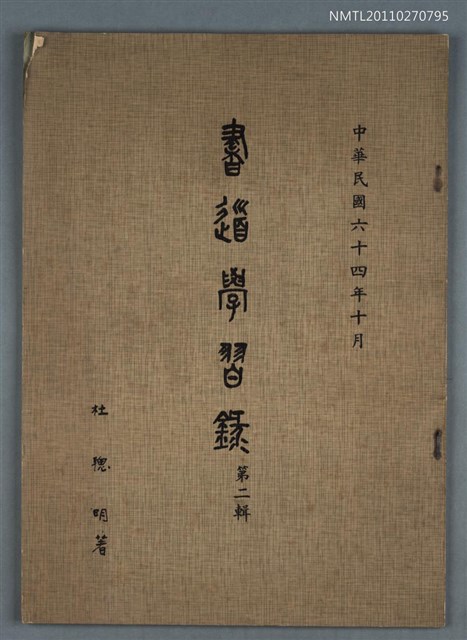 NMTL20110270795
中華民國六十四年十月
書道學習錄
第二輯
杜聰明著